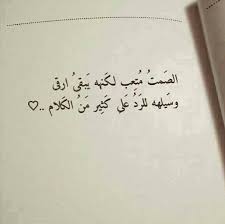 الصَمتُ مُتعِب لكنهه يَبقىُ ارقى
وسَيلهه للرَدُ عَلى كَثِير مَنُ الكَلام ..♡